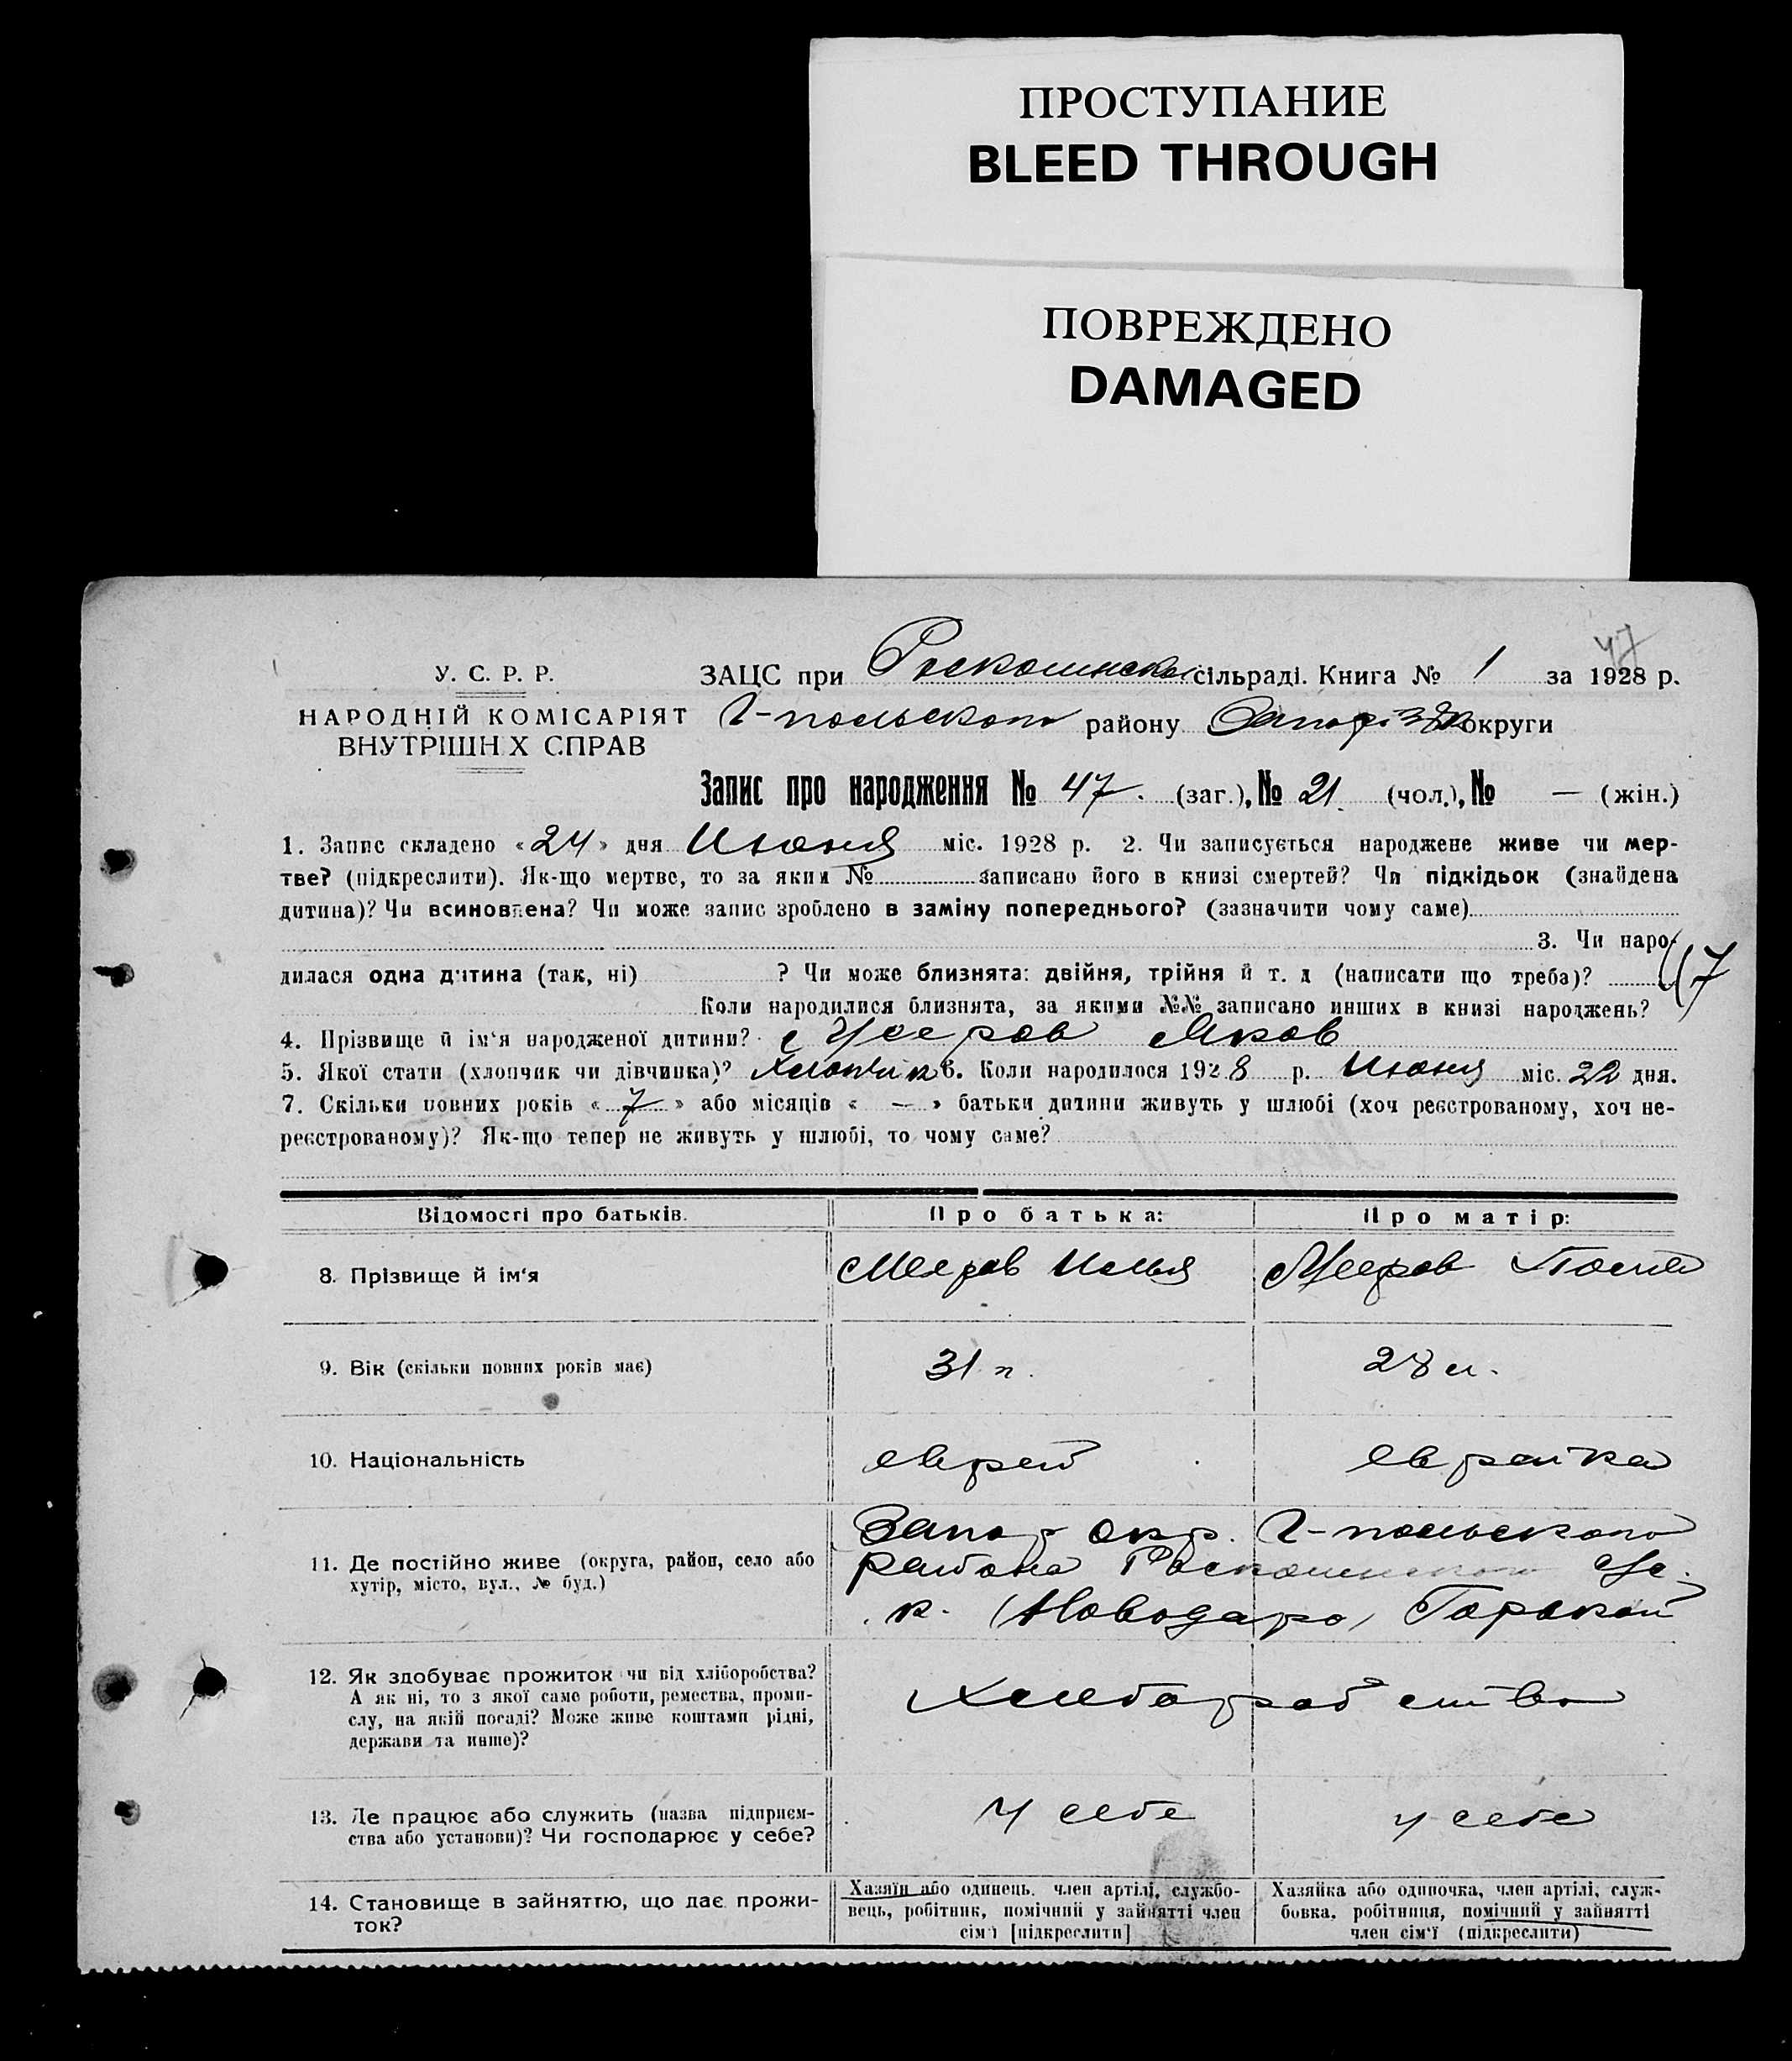 ПРОСТУПАНИЕ
BLEED THROUGH
ПОВРЕЖДЕНО
DAMAGED
47
У. С. Р. Р.
НАРОДНІЙ КОМІСАРІЯТ
ВНУТРІШН Х СПРАВ
ЗАЦС при Роскошинской сільраді. Книга № 1 за 1928 р.
2-польского району округи
Запис про народження № 47. (заг.), № 21. (чол.), № — (жін.)
1. Запис складено «24» дня Июня міс. 1928 р. 2. Чи записується народжене живе чи мер-
тве? (підкреслити). Як-що мертве, то за яким № записано його в книзі смертей? Чи підкідьок (знайдена
дитина)? Чи всиновлена? Чи може запис зроблено в заміну попереднього? (зазначити чому саме)
3. Чи наро-
дилася одна дитина (так, ні) ? Чи може близнята: двійня, трійня й т. д (написати що треба)? 47
Коли народилися близнята, за якими №№ записано инших в книзі народжень?
4. Прізвище й ім‘я народженої дитини? Мееров Яков
5. Якої стати (хлопчик чи дівчинка)? Хлопчик 6. Коли народилося 1928 р. Июня міс. 22 дня.
7. Скільки повних років «7» або місяців «—» батьки дитини живуть у шлюбі (хоч реєстрованому, хоч не-
реєстрованому)? Як-що тепер не живуть у шлюбі, то чому саме?
Відомості про батьків. Про батька: Про матір:
8. Прізвище й ім‘я Мееров Илья Мееров
9. Вік (скільки повних років має) 31 л. 28 л.
10. Національність еврей еврейка
11. Де постійно живе (округа, район, село або
хутір, місто, вул., № буд.)
Запор окр. 2-польского
района Роскошинского
к.
12. Як здобуває прожиток чи від хліборобства?
А як ні, то з якої саме роботи, ремества, проми-
слу, на якій посаді? Може живе коштами рідні,
держави та инше)?
Хлебоработство
13. Де працює або служить (назва підприєм-
ства або установи)? Чи господарює у себе?
у себе у себе
14. Становище в зайняттю, що дає прожи-
ток?
Хазяїн або одинець, член артілі, службо-
вець, робітник, помічний у зайнятті член
сім‘ї [підкреслити]
Хазяйка або одиночка, член артілі, служ-
бовка, робітниця, помічний у зайнятті
член сім‘ї (підкреслити)